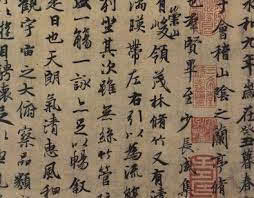 永和九年歲在癸丑暮春
于會稽山陰之蘭亭脩
也群賢畢至少長咸集
有崇山峻領茂林脩竹又有清
湍暎帶左右引以為流
列坐其次雖無絲竹管
一觴一詠亦足以暢敘
是日也天朗氣清惠風和
觀宇宙之大俯察品類
目騁懷足以